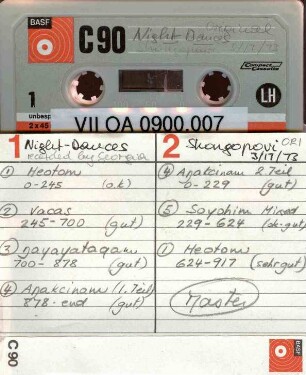 BASF
C90
Night-Dances
3/17/73
Compact Cassette
1
unbesp
2x45
LH
VII OA 0900.007
1 Night-Dances
recorded by Georgia
① Heotom
0-245 (o.k)
② Vacas
245-700 (gut)
③ nayayataqam
700-878 (gut)
④ Apakcinam (1. Teil)
878-end (gut)
2 Shongopovi ORI
3/17/73
④ Apakcinam 2. Teil
0-229 (gut)
⑤ Soyohim Mixed
229-624 (ok-gut)
① Heotom
624-917 (sehr gut)
Master
C90
BASF